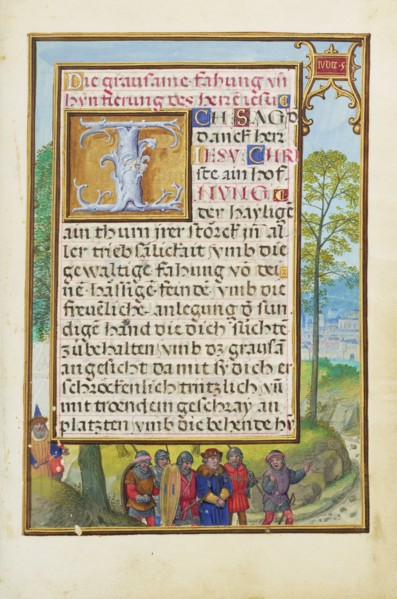 IVDIC·5
Die grausame fahung vn̄
hynfierung des herrē iesu
ICH SAG d
danck herr
IESV: CHR
ste ain hof
NVNG
der haylige
ain thum jrer störck jn al
ler triebsälickait vmb die
gewaltige fahung vō dei
nē hässigē feindē vmb die
freueliche anlegung d̄ sun
digē hand die dich süchtē
zůbehalten vmb dz grausā
angesicht da mit sy dich er
schrockenlich trutzlich vn̄
mit troendem geschray an
platzten vmb die behende hy